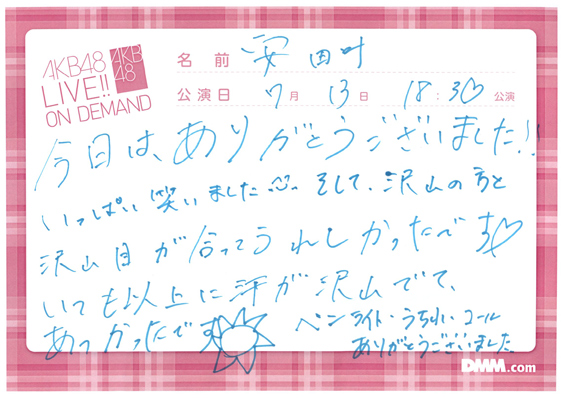 AKB48
LIVE!!
ON DEMAND
AKB
48
名前 安田叶
公演日 7月 13日 18:30♡ 公演
今日は、ありがとうございました!!
いっぱい笑いました そして、沢山の方と
沢山目が合ってうれしかったです♡
いつも以上に汗が沢山でて、
あつかったです
ペンライト・うちわ・コール
ありがとうございました
DMM.com